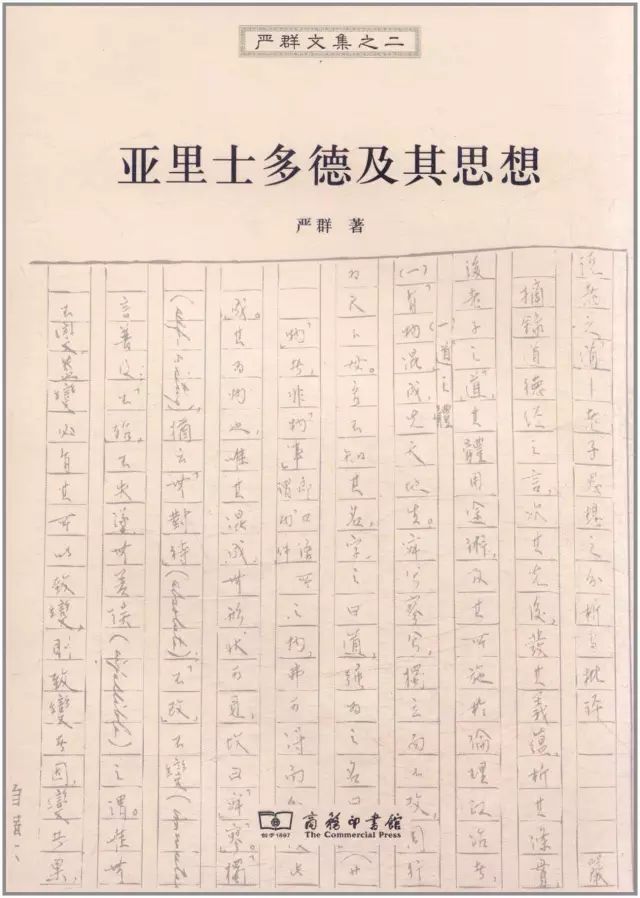 严群文集之二
亚里士多德及其思想
严群 著
說老之「道」—老子思想之分析与批評 嚴
摘錄道德經之言,次其先後,發其義蘊,析其條貫,
後老子之「道」,其體用塗術,及其所施於倫理政治者,
(一)道之體
(一)有物混成,先天地生。寂兮寥兮,獨立而不改,周行
為天下母。吾不知其名,字之曰道,強為之名曰(廿
「物」者,非「物」事 即口語所謂物件 之物,弗可得而
成。其為物也,唯其混成,無形狀可見,故曰「寂」「寥」。「獨
(self-existing),猶云無對待(absolute);「不改」,不變(immuta
言善;「不殆」,不失墜,無差誤(infallible)之謂。唯無
變必有其所以致變,即致變者因,變者果,
创于1897
商務印書館
The Commercial Press